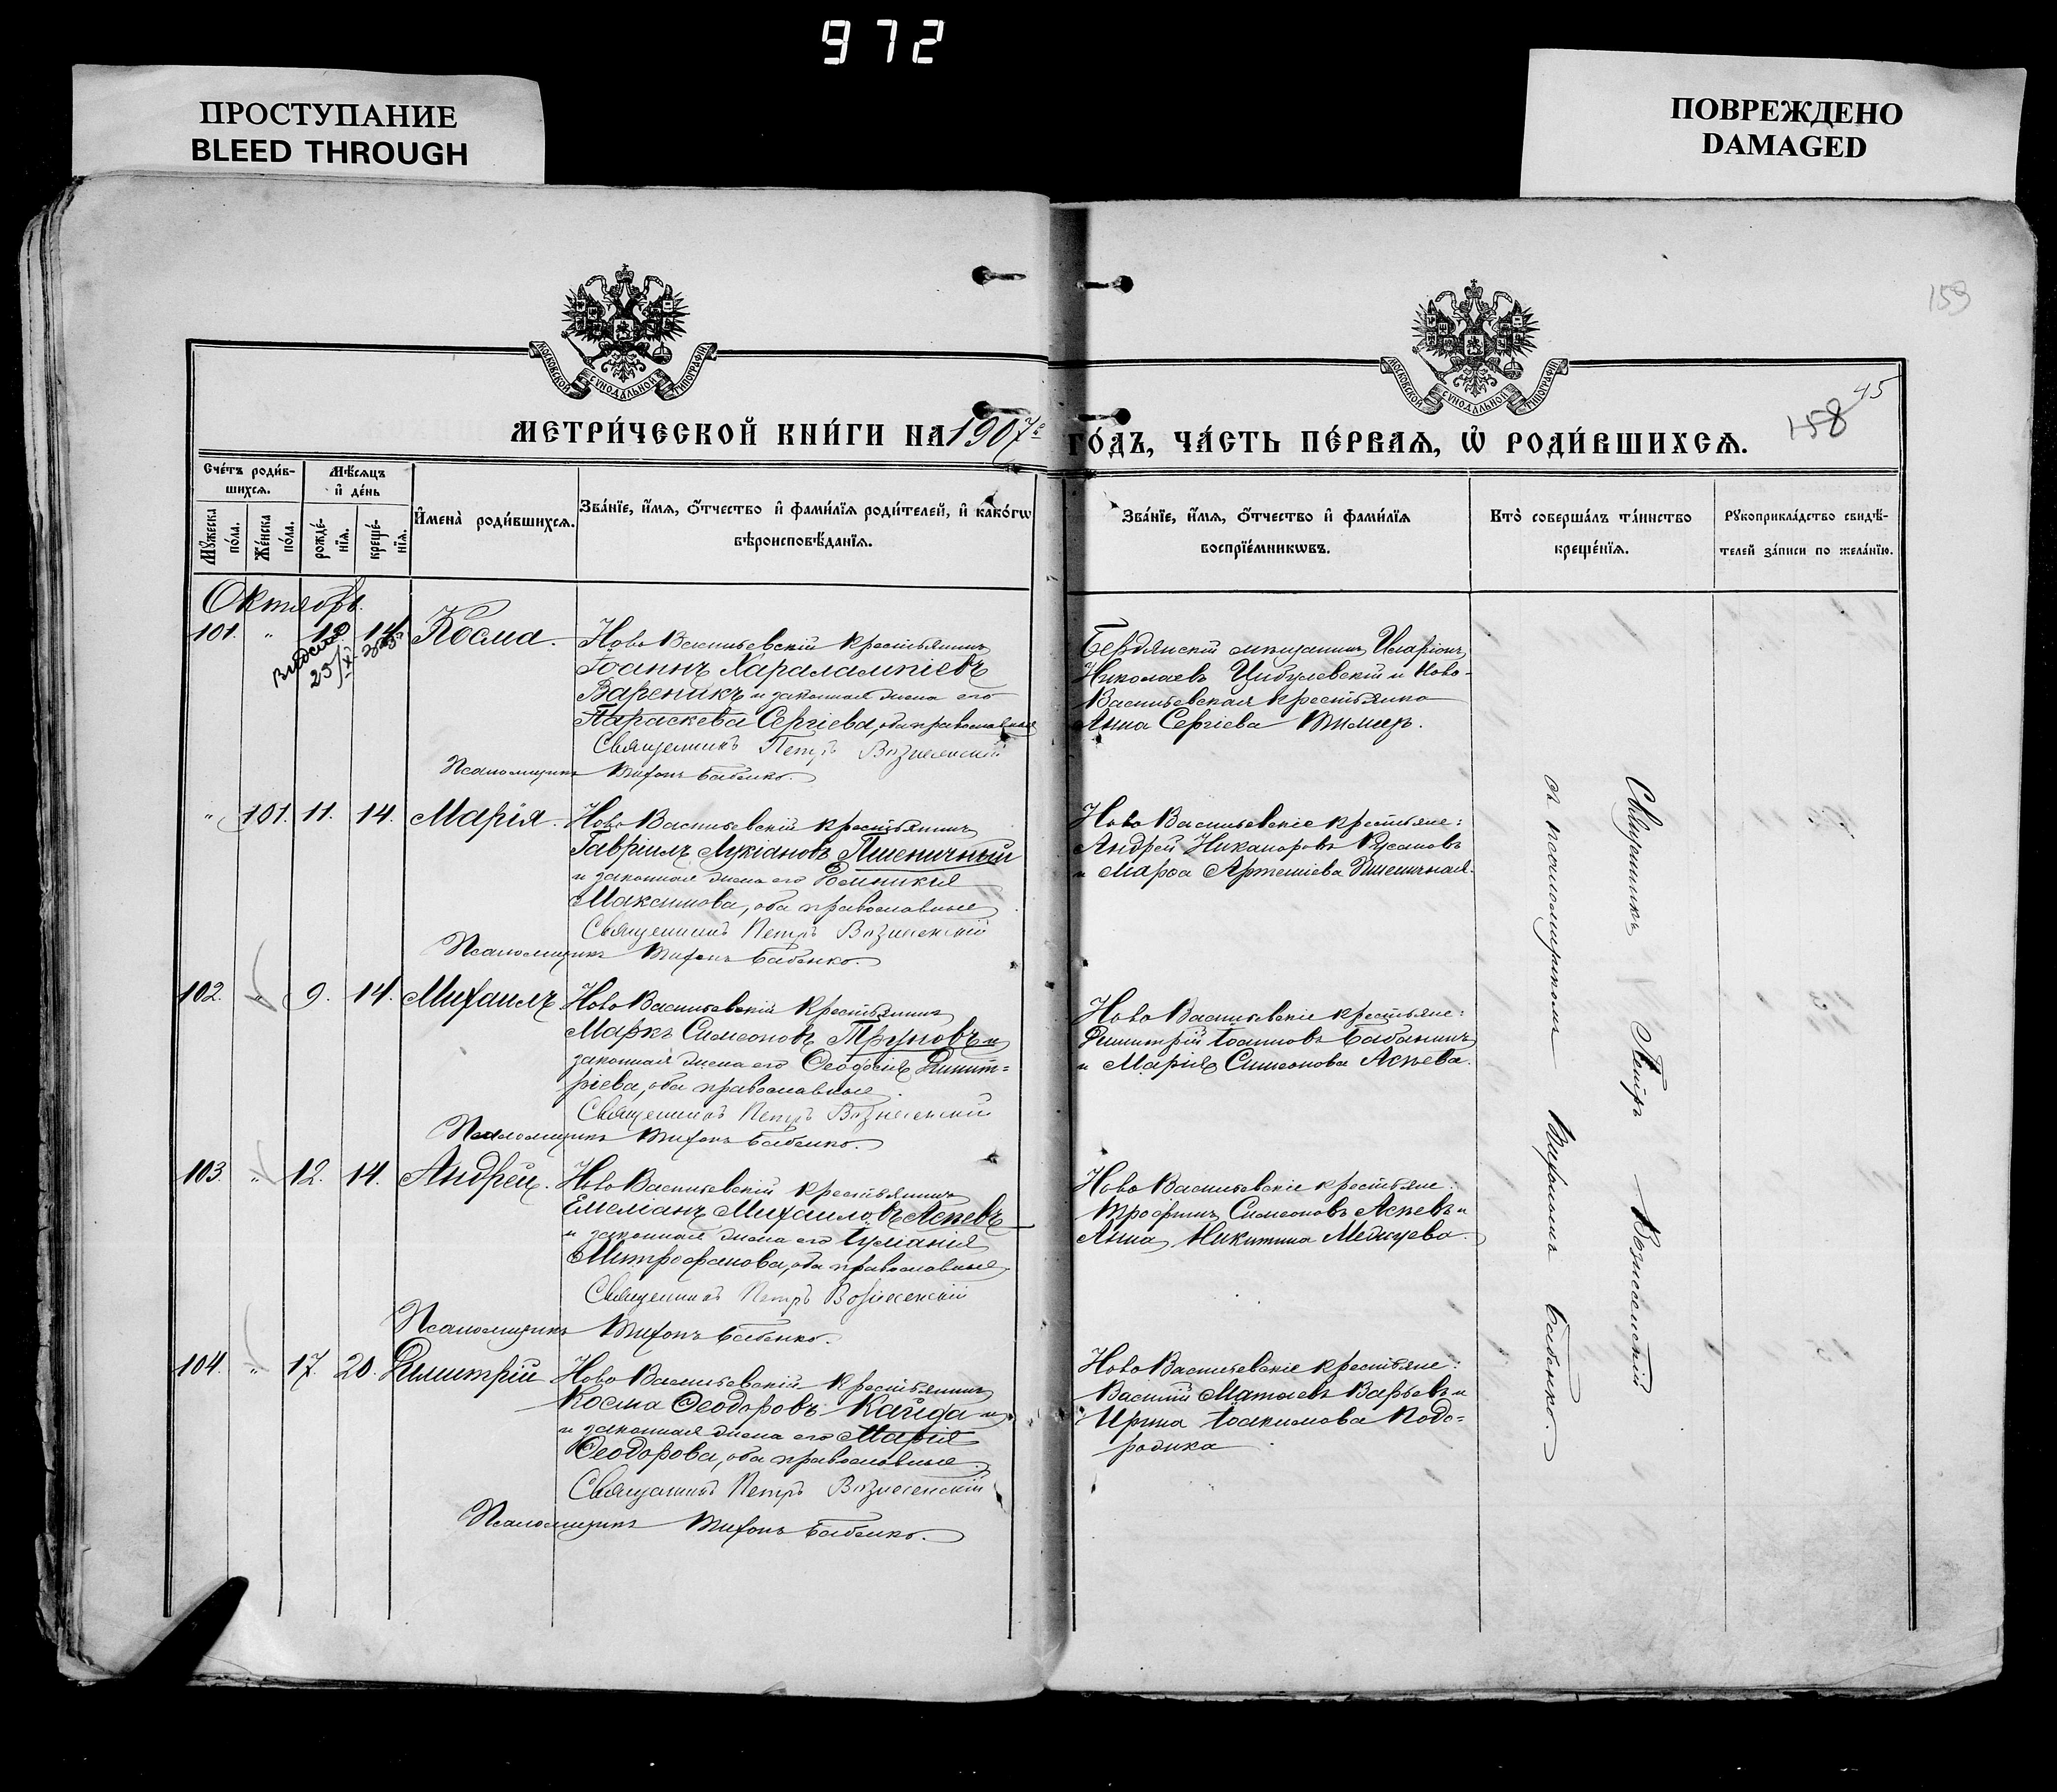 972
ПРОСТУПАНИЕ
BLEED THROUGH
ПОВРЕЖДЕНО
DAMAGED
159
МОСКОВСКОЙ СУНОДАЛЬНОЙ ТИПОГРАФІИ
МОСКОВСКОЙ СУНОДАЛЬНОЙ ТИПОГРАФІИ
45
158
МЕТРИ́ЧЕСКОЙ КНИ́ГИ НА 1907 ГО́ДЪ, ЧА́СТЬ ПЕ́РВАЯ, Ѡ РОДИ́ВШИХСЯ.
Сче́тъ роди́в-
шихся.
Мꙋ́жеска по́ла.
Же́нска по́ла.
Мѣ́сяцъ
и҆ де́нь
рожде́-
нїя.
креще́-
нїя.
И҆мена̀ роди́вшихся.
Зва́нїе, и҆́мя, ѻ҆́тчество и҆ фами́лїя роди́телей, и҆ како́гѡ
вѣроисповѣ́данїя.
Зва́нїе, и҆́мя, ѻ҆́тчество и҆ фами́лїя
воспрїе́мникѡвъ.
Кто̀ соверша́лъ та́инство
креще́нїя.
Рꙋкоприкла́дство свидѣ́-
телей за́писи по жела́нїю.
Октябрь.
101. " 14. Косма.
Ново Васильевскій крестьянинъ
Іоаннъ Харалампіевъ
Вареникъ и законная жена его
Параскева Сергіева, оба православные
Священникъ Петръ Вознесенскій
Псаломщикъ Тихонъ Бабенко.
Бердянскій мѣщанинъ Иларіонъ
Николаевъ Цибулевскій и Ново-
Васильевская крестьянка
Анна Сергіева
" 101. 11. 14. Марія.
Ново Васильевскій крестьянинъ
Гавріилъ Лукіановъ Пшеничный
и законная жена его
Максимова, оба православные
Священникъ Петръ Вознесенскій
Псаломщикъ Тихонъ Бабенко.
Ново Васильевскіе крестьяне:
Андрей Никаноровъ Русановъ
и Марѳа Артеміева Пшеничная.
102. " 9. 14. Михаилъ
Ново Васильевскій крестьянинъ
Маркъ Симеоновъ Труновъ и
законная жена его Ѳеодосія Димит=
ріева, оба православные.
Священникъ Петръ Вознесенскій
Псаломщикъ Тихонъ Бабенко.
Ново Васильевскіе крестьяне:
Димитрій Іоанновъ Бабанинъ
и Марія Симеонова Асѣева.
103. " 12. 14. Андрей.
Ново Васильевскій крестьянинъ
Емеліанъ Михаиловъ Асѣевъ
и законная жена его Іуліанія
Митрофанова, оба православные
Священникъ Петръ Вознесенскій
Псаломщикъ Тихонъ Бабенко.
Ново Васильевскіе крестьяне:
Трофимъ Симеоновъ Асѣевъ и
Анна Никитина
104. " 17. 20. Димитрій
Ново Васильевскій крестьянинъ
Косма Ѳеодоровъ Кайда и
и законная жена его Марія
Ѳеодорова, оба православные.
Священникъ Петръ Вознесенскій
Псаломщикъ Тихонъ Бабенко.
Ново Васильевскіе крестьяне:
Василій
Ирина Іоакимова
Священникъ Петръ Вознесенскій
съ псаломщикомъ Тихономъ Бабенко.